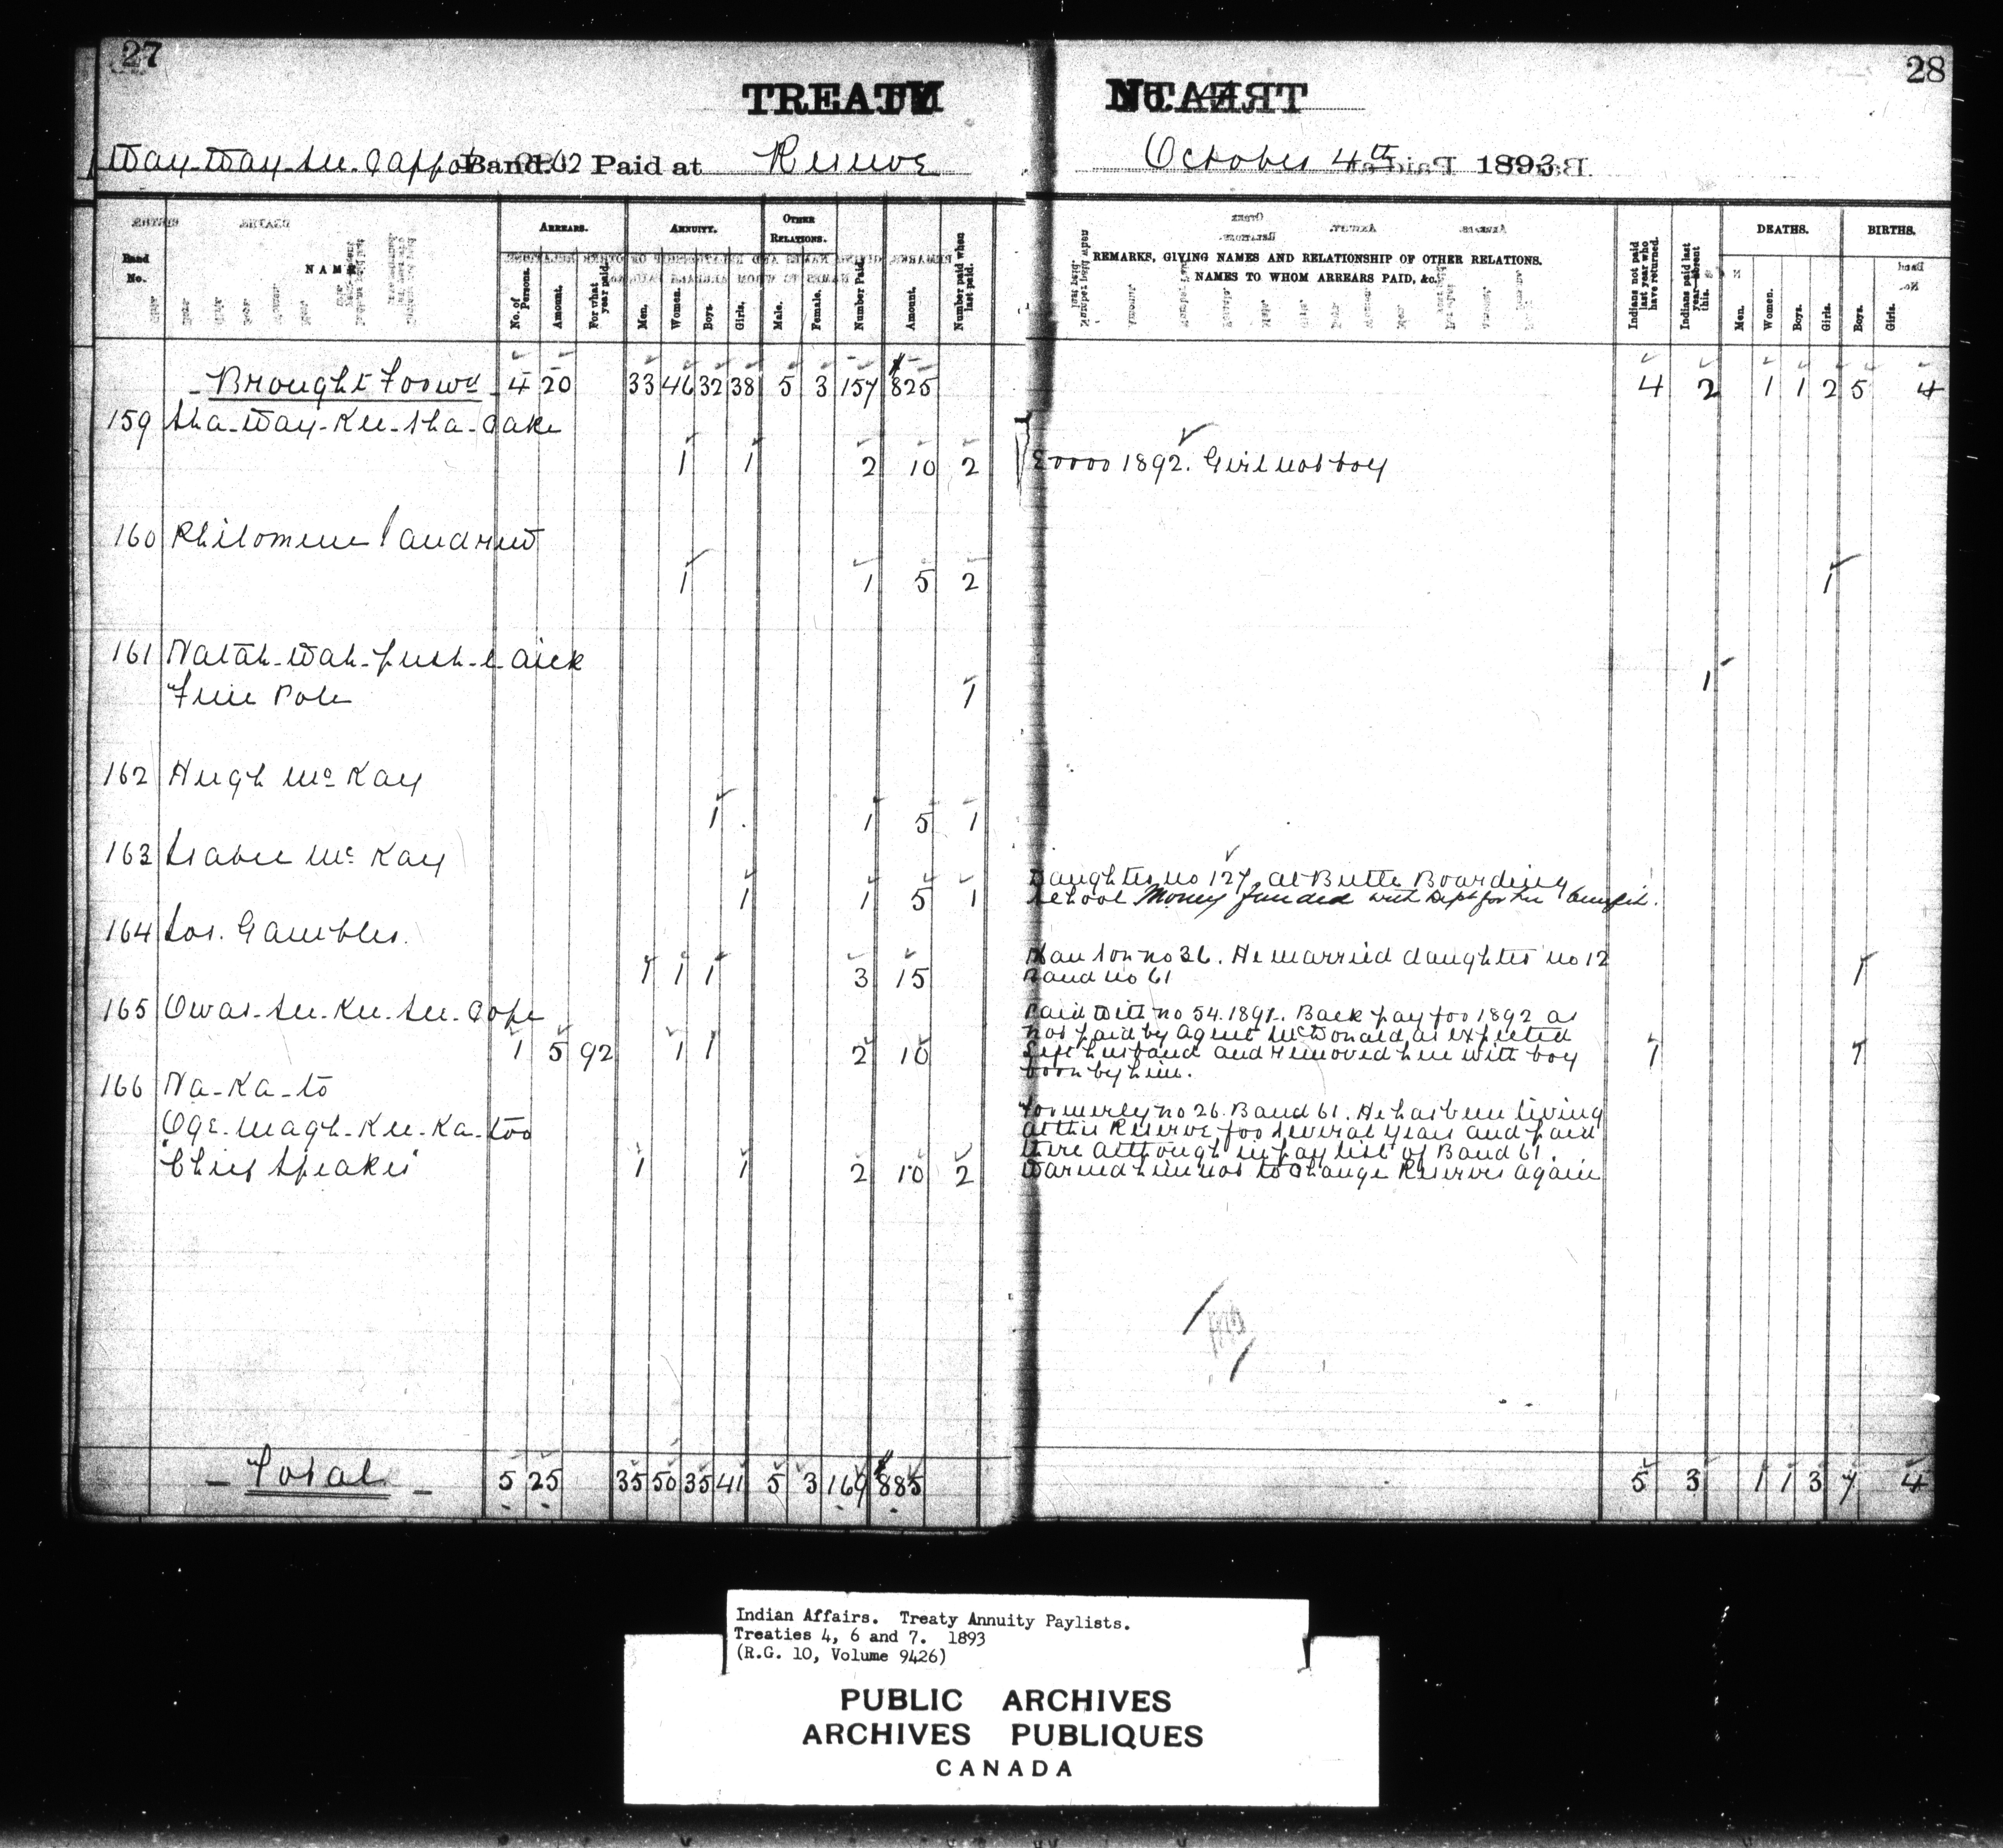 27
28
TREATY No. 4
Way-Way-see-Cappo Band 62 Paid at Reserve October 4th 1893
Band No.
NAME
ARREARS.
No. of Persons.
Amount.
For what year paid.
ANNUITY.
Men.
Women.
Boys.
Girls.
OTHER RELATIONS.
Male.
Female.
Number Paid.
Amount.
Number paid when last paid.
REMARKS, GIVING NAMES AND RELATIONSHIP OF OTHER RELATIONS.
NAMES TO WHOM ARREARS PAID, &c.
Indians not paid last year who have returned.
Indians paid last year absent this.
DEATHS.
Men.
Women.
Boys.
Girls.
BIRTHS.
Boys.
Girls.
Brought Forwd 4 20 33 46 32 38 5 3 157 $825 4 2 1 1 2 5 4
159 Sha-Way-Kee-sha-Cake
1 1 2 10 2 Error 1892. Girl not boy
160 Philomene
1 1 5 2 1
161 Natah-Wah-push-e-aick
Free Pole 1 1
162 Hugh McKay
1 1 5 1
163 Isabel McKay
1 1 5 1 Daughter no 127, at Birtle Boarding
School Money funded with Dept for her benefit.
164 Jos. Gambler.
1 1 1 3 15 son no 36. He married daughter no 12
Band no 61 1
165 Owas-see-Kee-see-Cope
1 5 92 1 1 2 10 Paid with no 54. 1891. Back pay for 1892 as
not paid by Agent McDonald as expected
Left husband and removed here with boy
born by him. 1 1
166 Na-Ka-to
Oge-Magh-Kee-Ka-too
"Chief Speaker" 1 1 2 10 2
Formerly no 26. Band 61. He has been living
at this Reserve for several years and paid
there although in pay list of Band 61
Warned him not to change Reserves again
Total 5 25 35 50 35 41 5 3 169 $885 5 3 1 1 3 7 4
Indian Affairs. Treaty Annuity Paylists.
Treaties 4, 6 and 7. 1893
(R.G. 10, Volume 9426)
PUBLIC ARCHIVES
ARCHIVES PUBLIQUES
CANADA